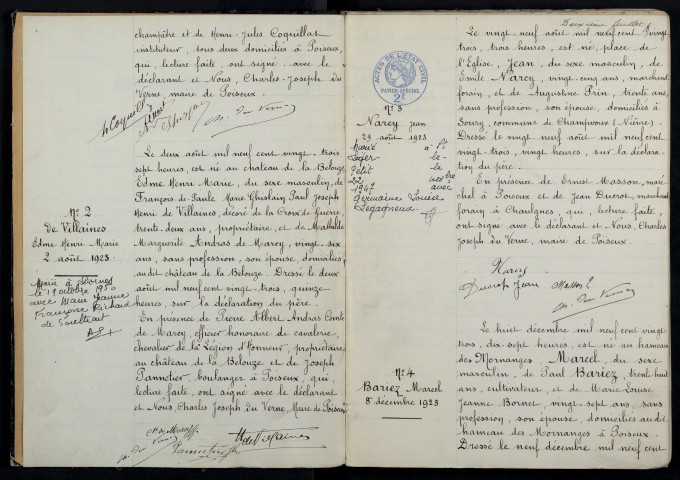 champêtre et de Henri-Jules Coquillat
instituteur, tous deux domiciliés à Poiseux,
qui, lecture faite, ont signé avec le
déclarant et Nous, Charles-Joseph Du
Verne, maire de Poiseux.
h Coquillat
Ch. Du Verne
N° 2
De Villaines
Edme Henri Marie
2 août 1923
Marié à Dornes
le 19 octobre 1950
avec Marie Jeanne
Françoise Richard
de Soultrait
Le deux août mil neuf cent vingt-trois
sept heures, est né au château de la Belouze,
Edme Henri Marie, du sexe masculin, de
François de Paule Marie Ghislain Paul Joseph
Henri de Villaines, décoré de la Croix de Guerre,
trente-deux ans, propriétaire, et de Mathilde
Marguerite Andras de Marcy, vingt-six
ans, sans profession, son épouse, domiciliés
audit château de la Belouze. Dressé le deux
août mil neuf cent vingt-trois, quinze
heures, sur la déclaration du père.
En présence de Pierre Albert Andras Comte
de Marcy, officier honoraire de cavalerie,
chevalier de la Légion d'Honneur, propriétaire
au château de la Belouze et de Joseph
Pannetier, boulanger à Poiseux, qui,
lecture faite, ont signé avec le déclarant
et Nous, Charles Joseph Du Verne, Maire de Poiseux
Ch. Du Verne
Pannetier
H de Villaines
Deuxième feuillet
ACTES DE L'ÉTAT CIVIL
PAPIER SPÉCIAL
2F
N° 3
Narcy Jean
29 août 1923
Marié à St
Leger le
Petit le
22 novbre
1947 avec
Germaine Louise
Legagneux
Le vingt-neuf août mil neuf cent vingt
trois, trois heures, est né, place de
l'Eglise, Jean, du sexe masculin, de
Emile Narcy, vingt-cinq ans, marchand
forain, et de Augustine Prin, trente ans,
sans profession, son épouse, domiciliés à
Soury, commune de Champvoux (Nièvre).
Dressé le vingt-neuf août mil neuf cent
vingt-trois, vingt heures, sur la déclara-
tion du père.
En présence de Ernest Masson, maré
chal à Poiseux et de Jean Ducrot, marchand
forain à Chaulgnes, qui, lecture faite,
ont signé avec le déclarant et Nous, Charles
Joseph Du Verne, maire de Poiseux.
Narcy
Ducrot Jean Masson E
Ch. Du Verne
N° 4
Bariez Marcel
8 décembre 1923
Le huit décembre mil neuf cent vingt
trois, dix-sept heures, est né au hameau
des Mornanges, Marcel, du sexe
masculin, de Paul Bariez, trente-huit
ans, cultivateur, et de Marie-Louise
Jeanne Bornet, vingt-sept ans, sans
profession, son épouse, domiciliés audit
hameau des Mornanges à Poiseux.
Dressé le neuf décembre mil neuf cent